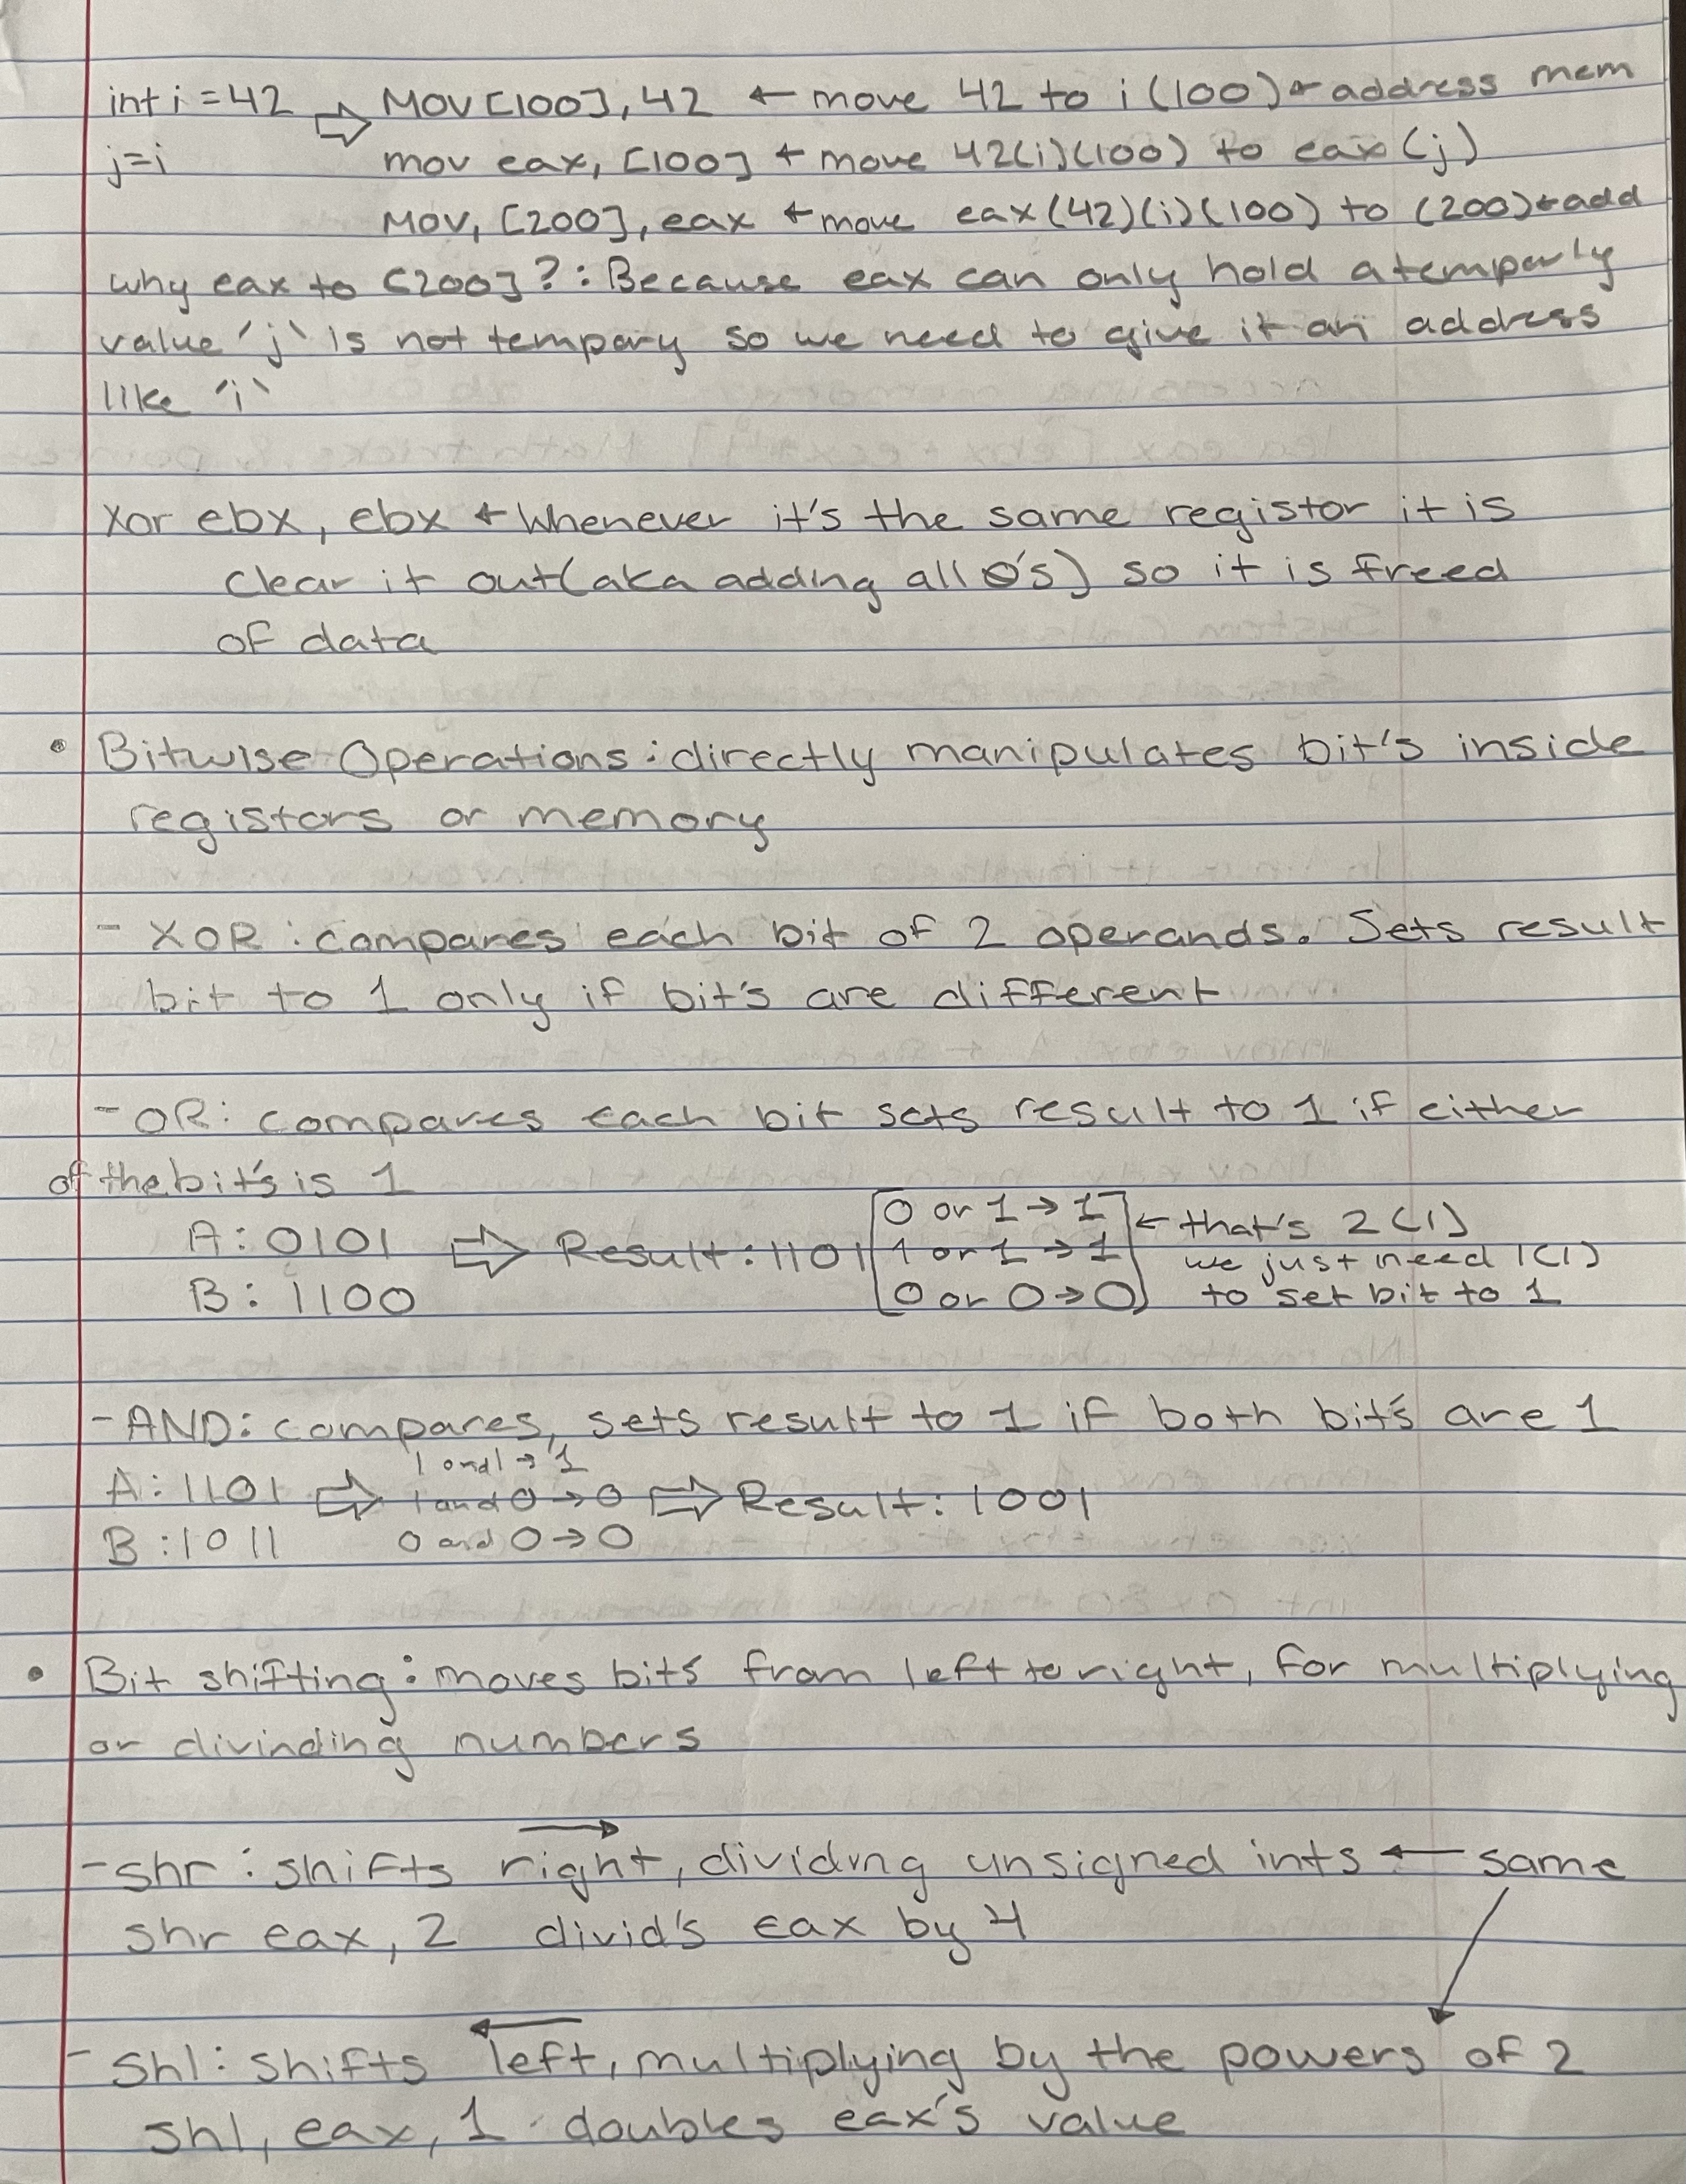 int i = 42 ⇨ MOV [100], 42 ← move 42 to i (100) ← address mem
j=i mov eax, [100] ← move 42(i)(100) to eax (j)
Mov, [200], eax ← move eax(42)(i)(100) to (200)← add
why eax to [200]?: Because eax can only hold a temparly
value 'j' is not tempory so we need to give it an address
like 'i'
Xor ebx, ebx ← Whenever it's the same registor it is
clear it out(aka adding all 0's) so it is freed
of data
• Bitwise Operations: directly manipulates bit's inside
registors or memory
- XOR: compares each bit of 2 operands. Sets result
bit to 1 only if bit's are different
- OR: compares each bit sets result to 1 if either
of the bit's is 1
0 or 1 → 1 ← that's 2 (1)
A: 0101 ⇨ Result: 1101 1 or 1 → 1 we just need 1(1)
B: 1100 0 or 0 → 0 to set bit to 1
- AND: compares, sets result to 1 if both bit's are 1
1 and 1 → 1
A: 1101 ⇨ 1 and 0 → 0 ⇨ Result: 1001
B: 1011 0 and 0 → 0
• Bit shifting: moves bit's from left to right, for multiplying
or divinding numbers
- shr: shifts right, dividing unsigned ints ← same
shr eax, 2 divid's eax by 4
- shl: shifts left, multiplying by the powers of 2
shl, eax, 1 doubles eax's value